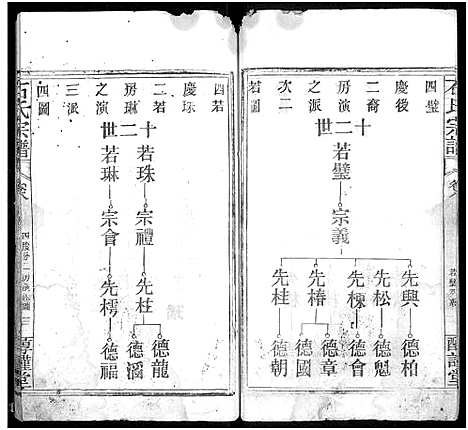 石氏宗譜
四璧
慶後
二裔
房演
之派
次二
若圖
十二世
若璧—宗義
先興 先松 先棟 先椿 先桂
德柏 德魁 德會 德章 德國 德朝
四若
慶珠
二若
房琳
之演
三派
四圖
十二世
若珠—宗禮—先柱
德龍 德滔
若琳—宗會—先樗—德福
石氏宗譜
卷八